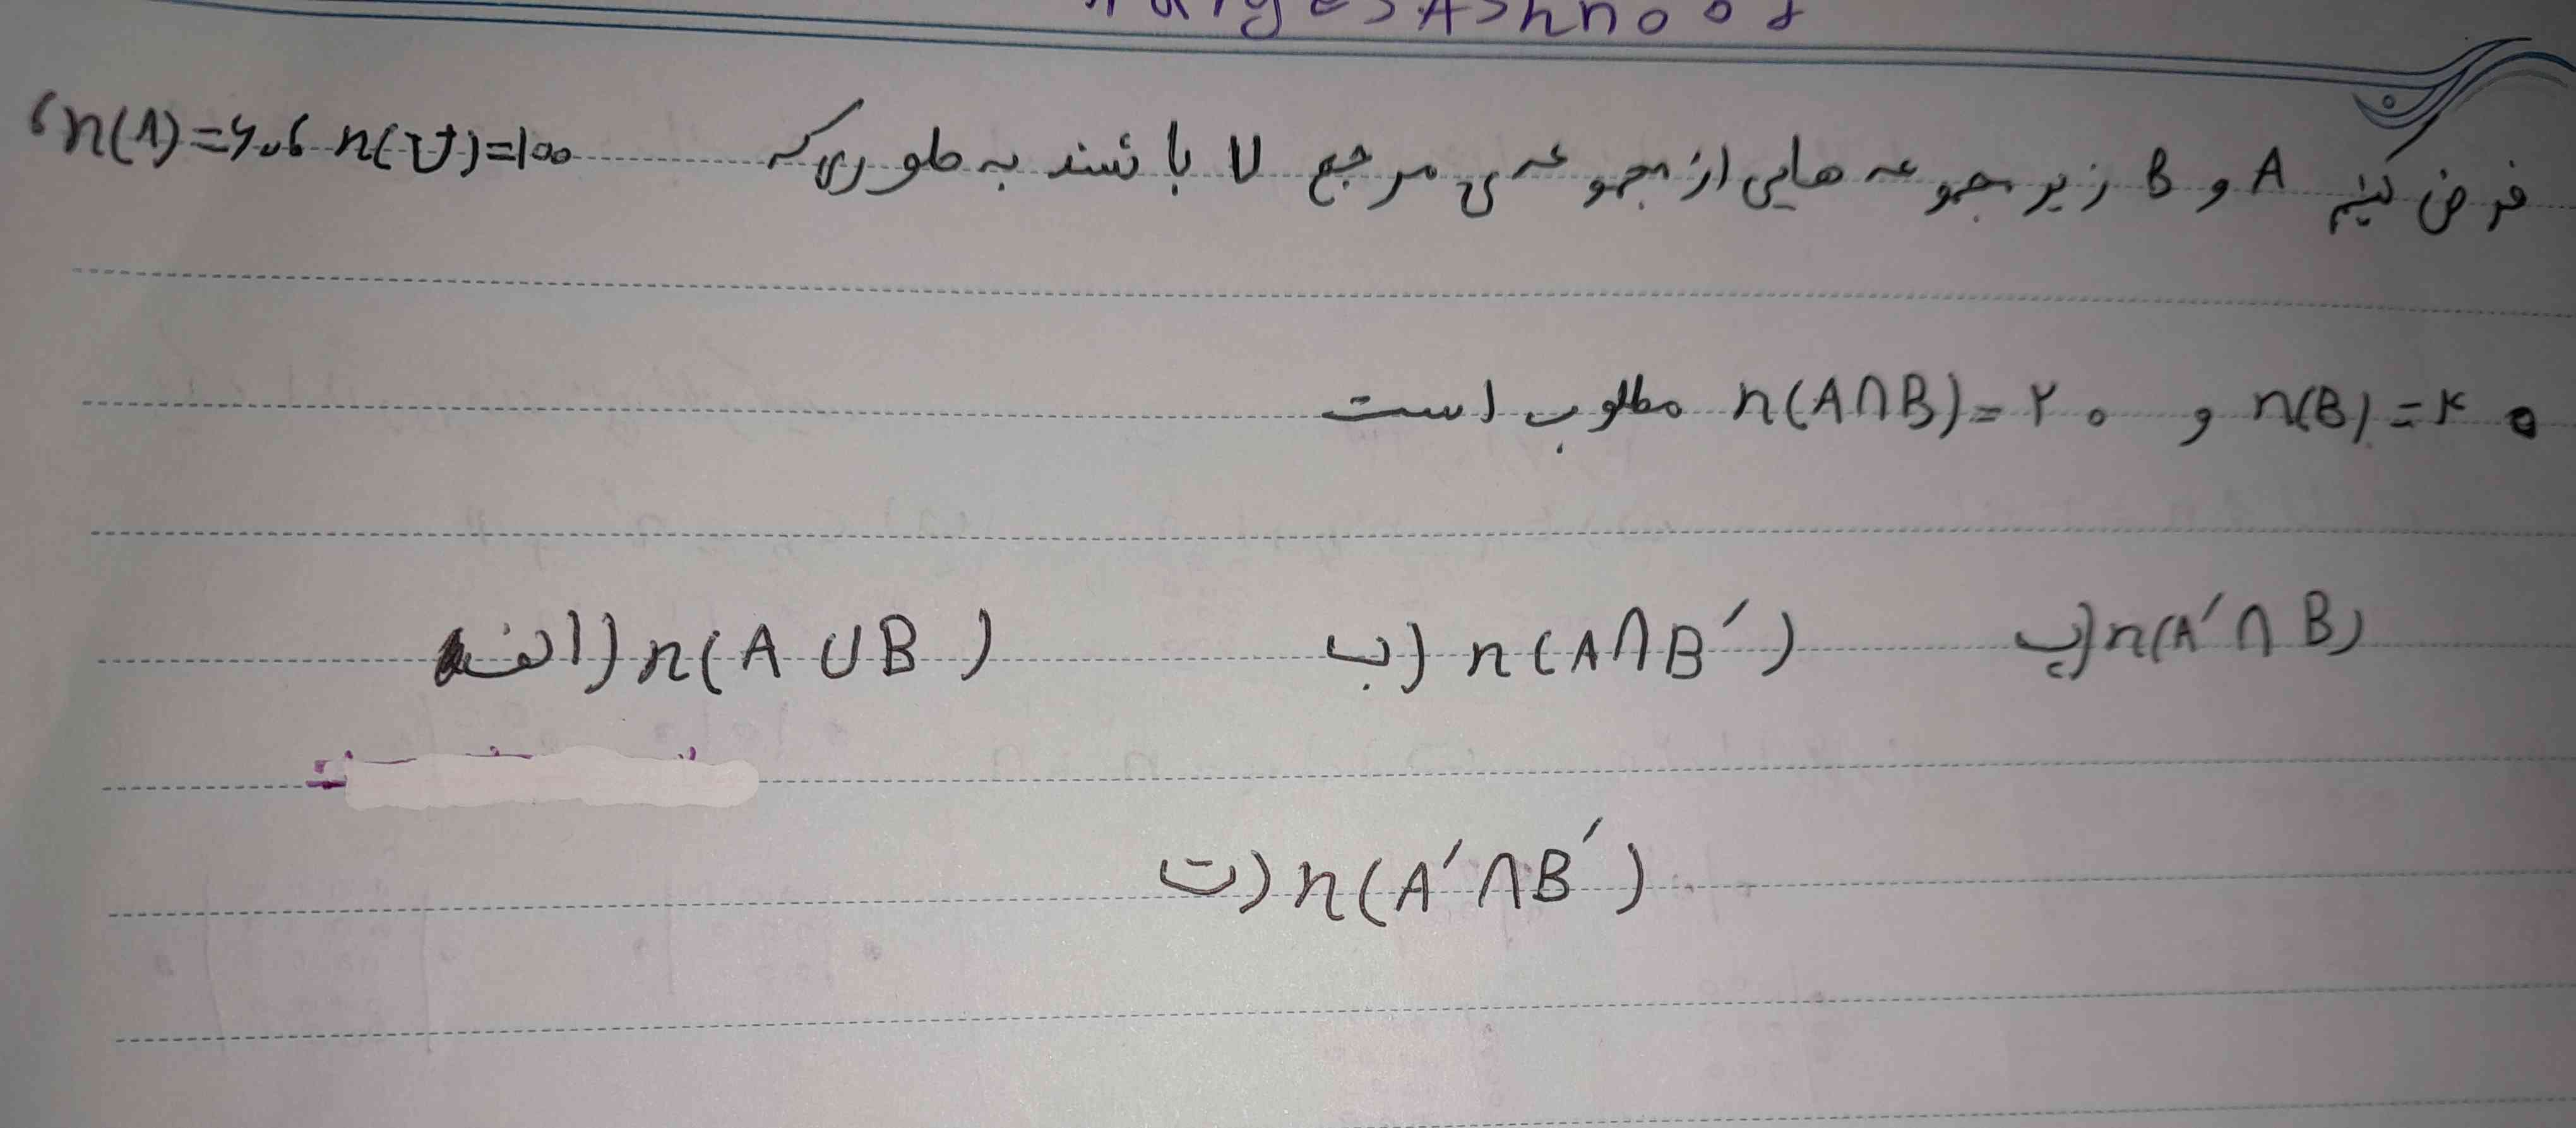 فرض کنیم A و B زیر مجموعه هایی از مجموعه ی مرجع U باشند به طوری که n(U)=۱۰۰ ، n(A)=۶۰ ،
n(B)=۴۰ و n(A∩B)=۲۰ مطلوب است
الف) n(A∪B) ب) n(A∩B′) پ) n(A′∩B)
ت) n(A′∩B′)